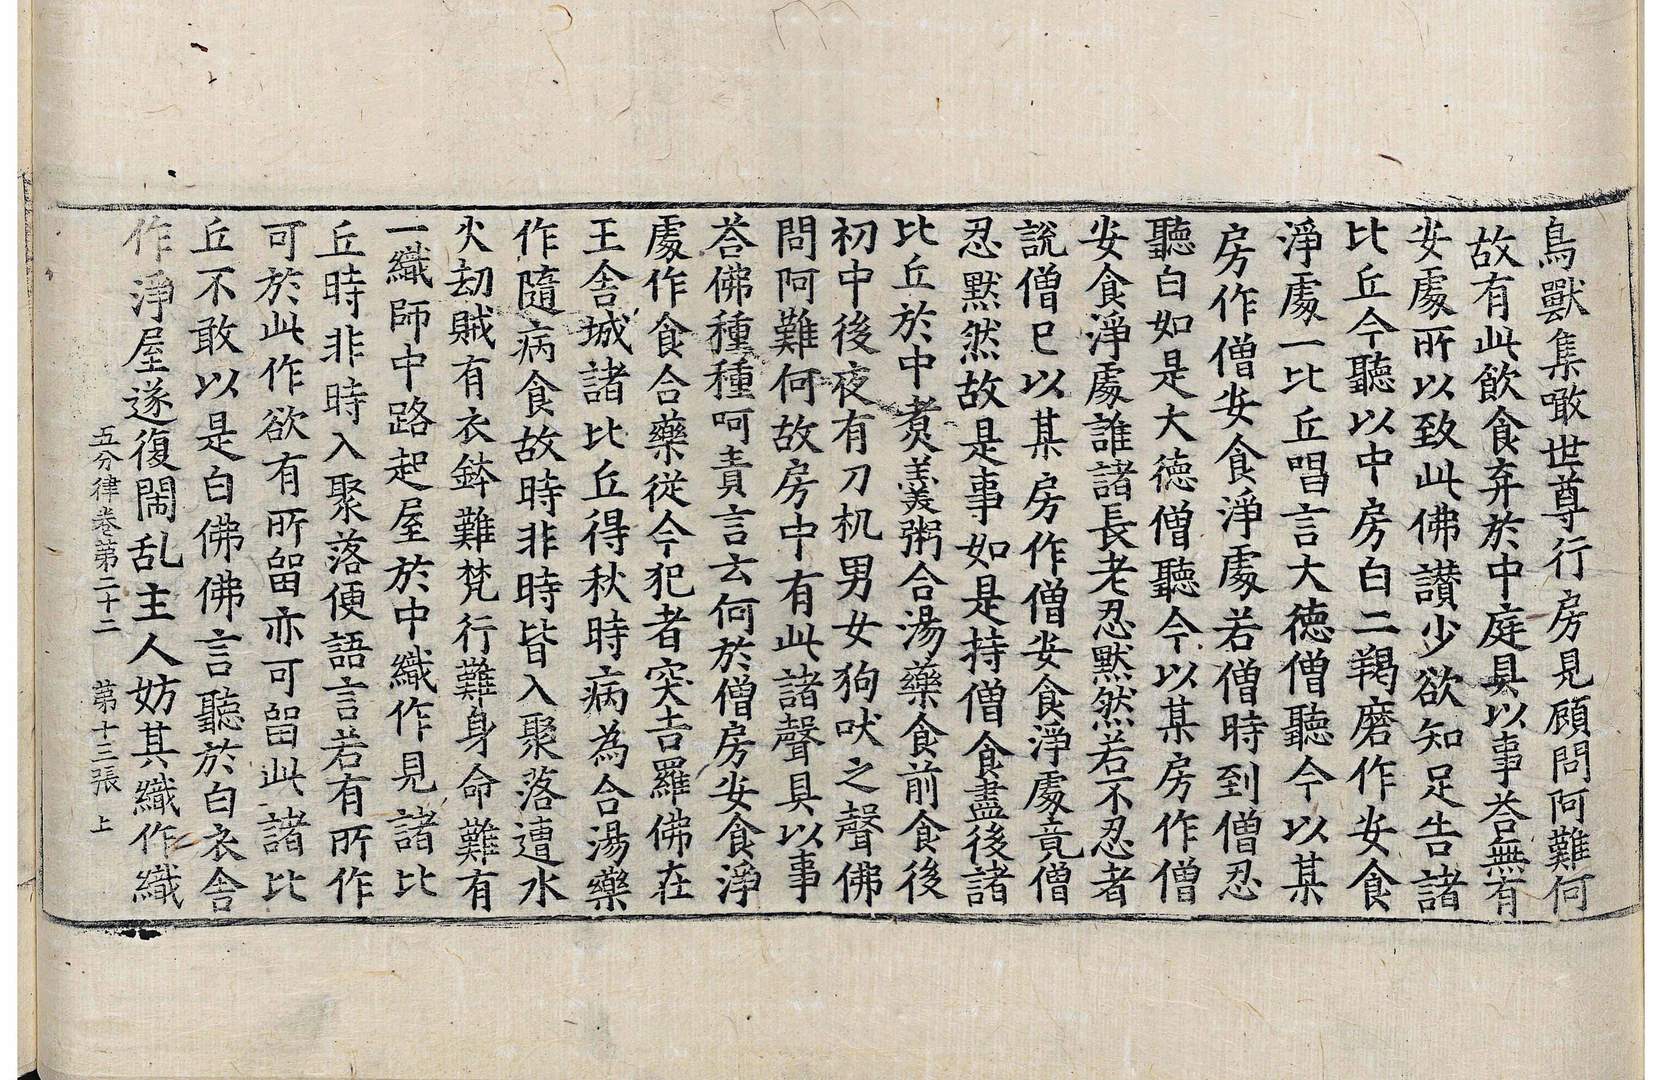 鳥獸集噉世尊行房見顧問阿難何
故有此飲食弃於中庭具以事荅無有
安處所以致此佛讚少欲知足告諸
比丘今聽以中房白二羯磨作安食
淨處一比丘唱言大德僧聽今以某
房作僧安食淨處若僧時到僧忍
聽白如是大德僧聽今以某房作僧
安食淨處誰諸長老忍默然若不忍者
說僧已以某房作僧安食淨處竟僧
忍默然故是事如是持僧食盡後諸
比丘於中煮羹粥合湯藥食前食後
初中後夜有刀机男女狗吠之聲佛
問阿難何故房中有此諸聲具以事
荅佛種種呵責言云何於僧房安食淨
處作食合藥從今犯者突吉羅佛在
王舍城諸比丘得秋時病為合湯藥
作隨病食故時非時皆入聚落遭水
火劫賊有衣鉢難梵行難身命難有
一織師中路起屋於中織作見諸比
丘時非時入聚落便語言若有所作
可於此作欲有所留亦可留此諸比
丘不敢以是白佛佛言聽於白衣舍
作淨屋遂復閙乱主人妨其織作織
五分律卷第二十二 第十三張 上